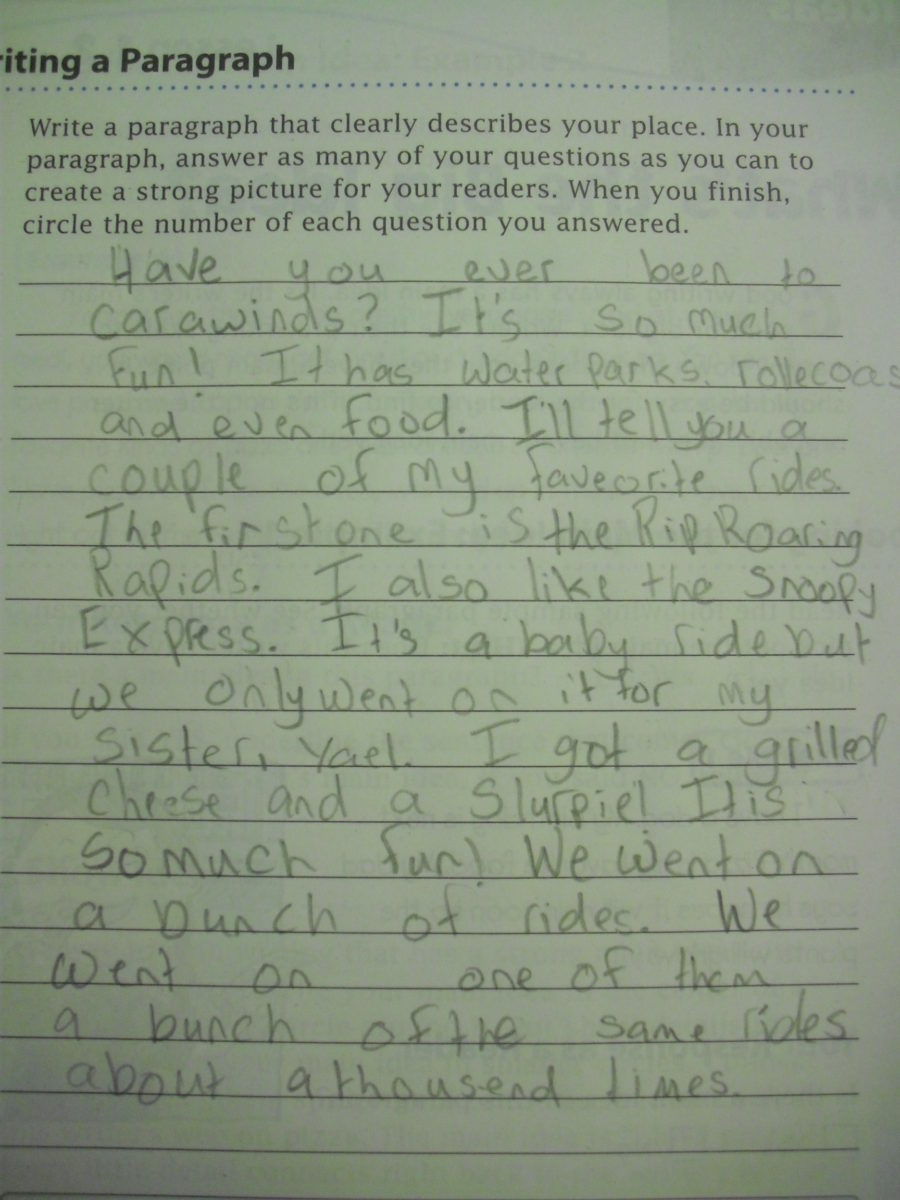 riting a Paragraph
Write a paragraph that clearly describes your place. In your
paragraph, answer as many of your questions as you can to
create a strong picture for your readers. When you finish,
circle the number of each question you answered.
Have you ever been to
Carawinds? It's so much
fun! It has water parks, rollecoas
and even food. I'll tell you a
couple of my faveorite rides.
The first one is the Rip Roaring
Rapids. I also like the Snoopy
Express. It's a baby ride but
we only went on it for my
sister, Yael. I got a grilled
cheese and a Slurpie! It is
so much fun! We went on
a bunch of rides. We
went on one of them
a bunch of the same rides
about a thousend times.